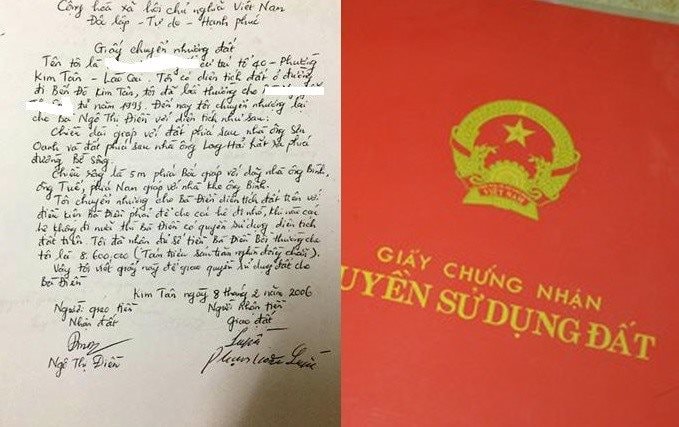 Cộng hòa xã hội chủ nghĩa Việt Nam
Độc lập - Tự do - Hạnh phúc
Giấy chuyển nhường đất
Tên tôi là cư trú tổ 40 - Phường
Kim Tân - Lào Cai. Tôi có diện tích đất ở đường
đi Bến Đá Kim Tân, tôi đã bồi thường cho
từ năm 1993. Đến nay tôi chuyển nhường lại
cho bà Ngô Thị Điền với diện tích như sau:
Chiều dài giáp với đất phía sau nhà ông Sên
Oanh và đất phía sau nhà ông Long Hải Kất và phía
đường Bờ Sông.
Chiều rộng là 5m phía Bắc giáp với dãy nhà ông Bình,
ông Tuế, phía Nam giáp với nhà kho ông Bình.
Tôi chuyển nhường cho Bà Điền diện tích đất trên với
điều kiện Bà Điền phải để cho các hộ đi nhờ, khi nào các
hộ không đi nữa thì Bà Điền có quyền sử dụng diện tích
đất trên. Tôi đã nhận đủ số tiền Bà Điền Bồi thường cho
tôi là 8.600.000 (Tám triệu sáu trăm nghìn đồng chẵn).
Vậy tôi viết giấy này để giao quyền sử dụng đất cho
bà Điền
Kim Tân ngày 8 tháng 2 năm 2006
Người giao tiền Người nhận tiền
Nhận đất Giao đất
Ngô Thị Điền
VIỆT NAM
GIẤY CHỨNG NHẬN
UYỀN SỬ DỤNG ĐẤT